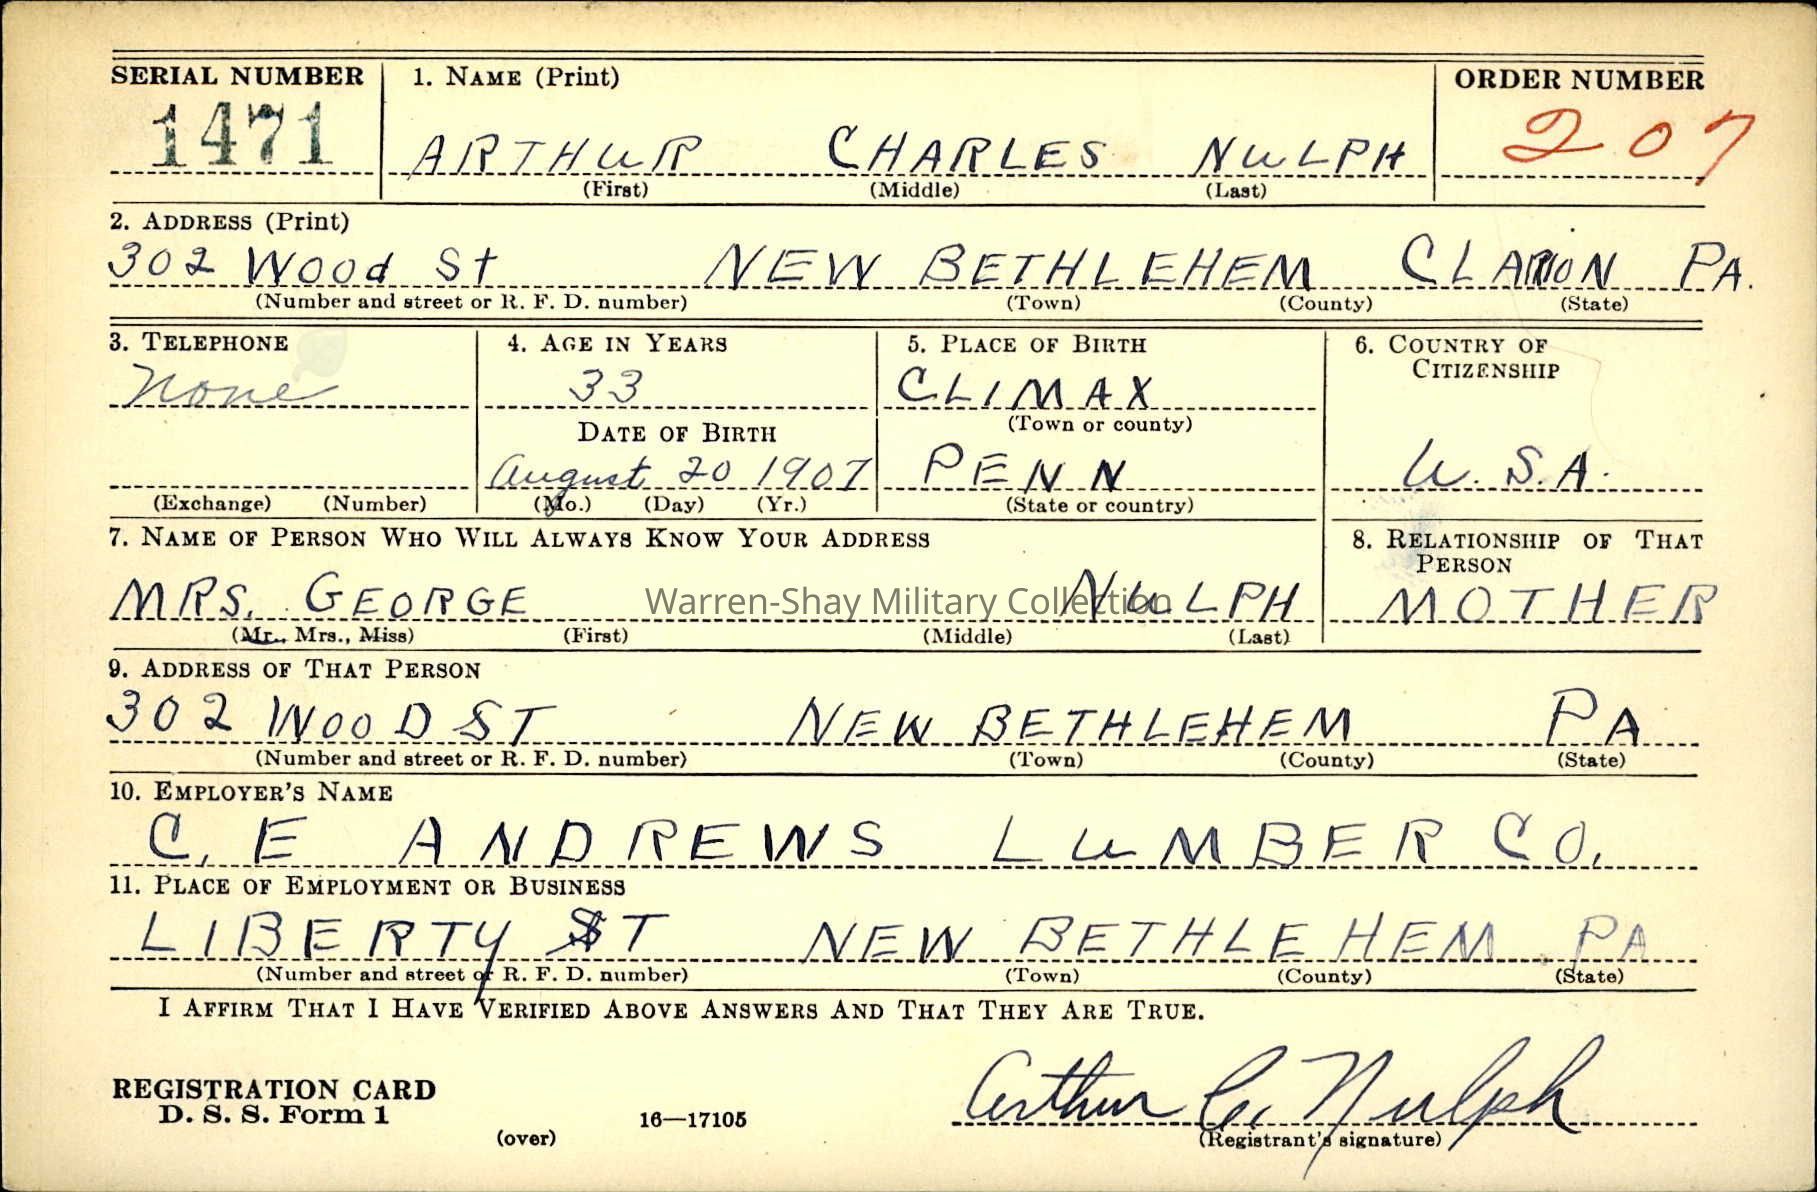 SERIAL NUMBER 1. NAME (Print) ORDER NUMBER
1471 ARTHUR CHARLES NULPH 207
(First) (Middle) (Last)
2. ADDRESS (Print)
302 Wood St NEW BETHLEHEM CLARION PA.
(Number and street or R. F. D. number) (Town) (County) (State)
3. TELEPHONE 4. AGE IN YEARS 5. PLACE OF BIRTH 6. COUNTRY OF
CITIZENSHIP
None 33 CLIMAX
(Town or county)
DATE OF BIRTH
August 20 1907 PENN U.S.A.
(Exchange) (Number) (Mo.) (Day) (Yr.) (State or country)
7. NAME OF PERSON WHO WILL ALWAYS KNOW YOUR ADDRESS 8. RELATIONSHIP OF THAT
PERSON
MRS. GEORGE NULPH MOTHER
Warren-Shay Military Collection
(Mr., Mrs., Miss) (First) (Middle) (Last)
9. ADDRESS OF THAT PERSON
302 WOOD ST NEW BETHLEHEM PA
(Number and street or R. F. D. number) (Town) (County) (State)
10. EMPLOYER'S NAME
C. E ANDREWS LUMBER CO.
11. PLACE OF EMPLOYMENT OR BUSINESS
LIBERTY ST NEW BETHLEHEM. PA
(Number and street or R. F. D. number) (Town) (County) (State)
I AFFIRM THAT I HAVE VERIFIED ABOVE ANSWERS AND THAT THEY ARE TRUE.
REGISTRATION CARD
D. S. S. Form 1 16—17105 Arthur C. Nulph
(over) (Registrant's signature)